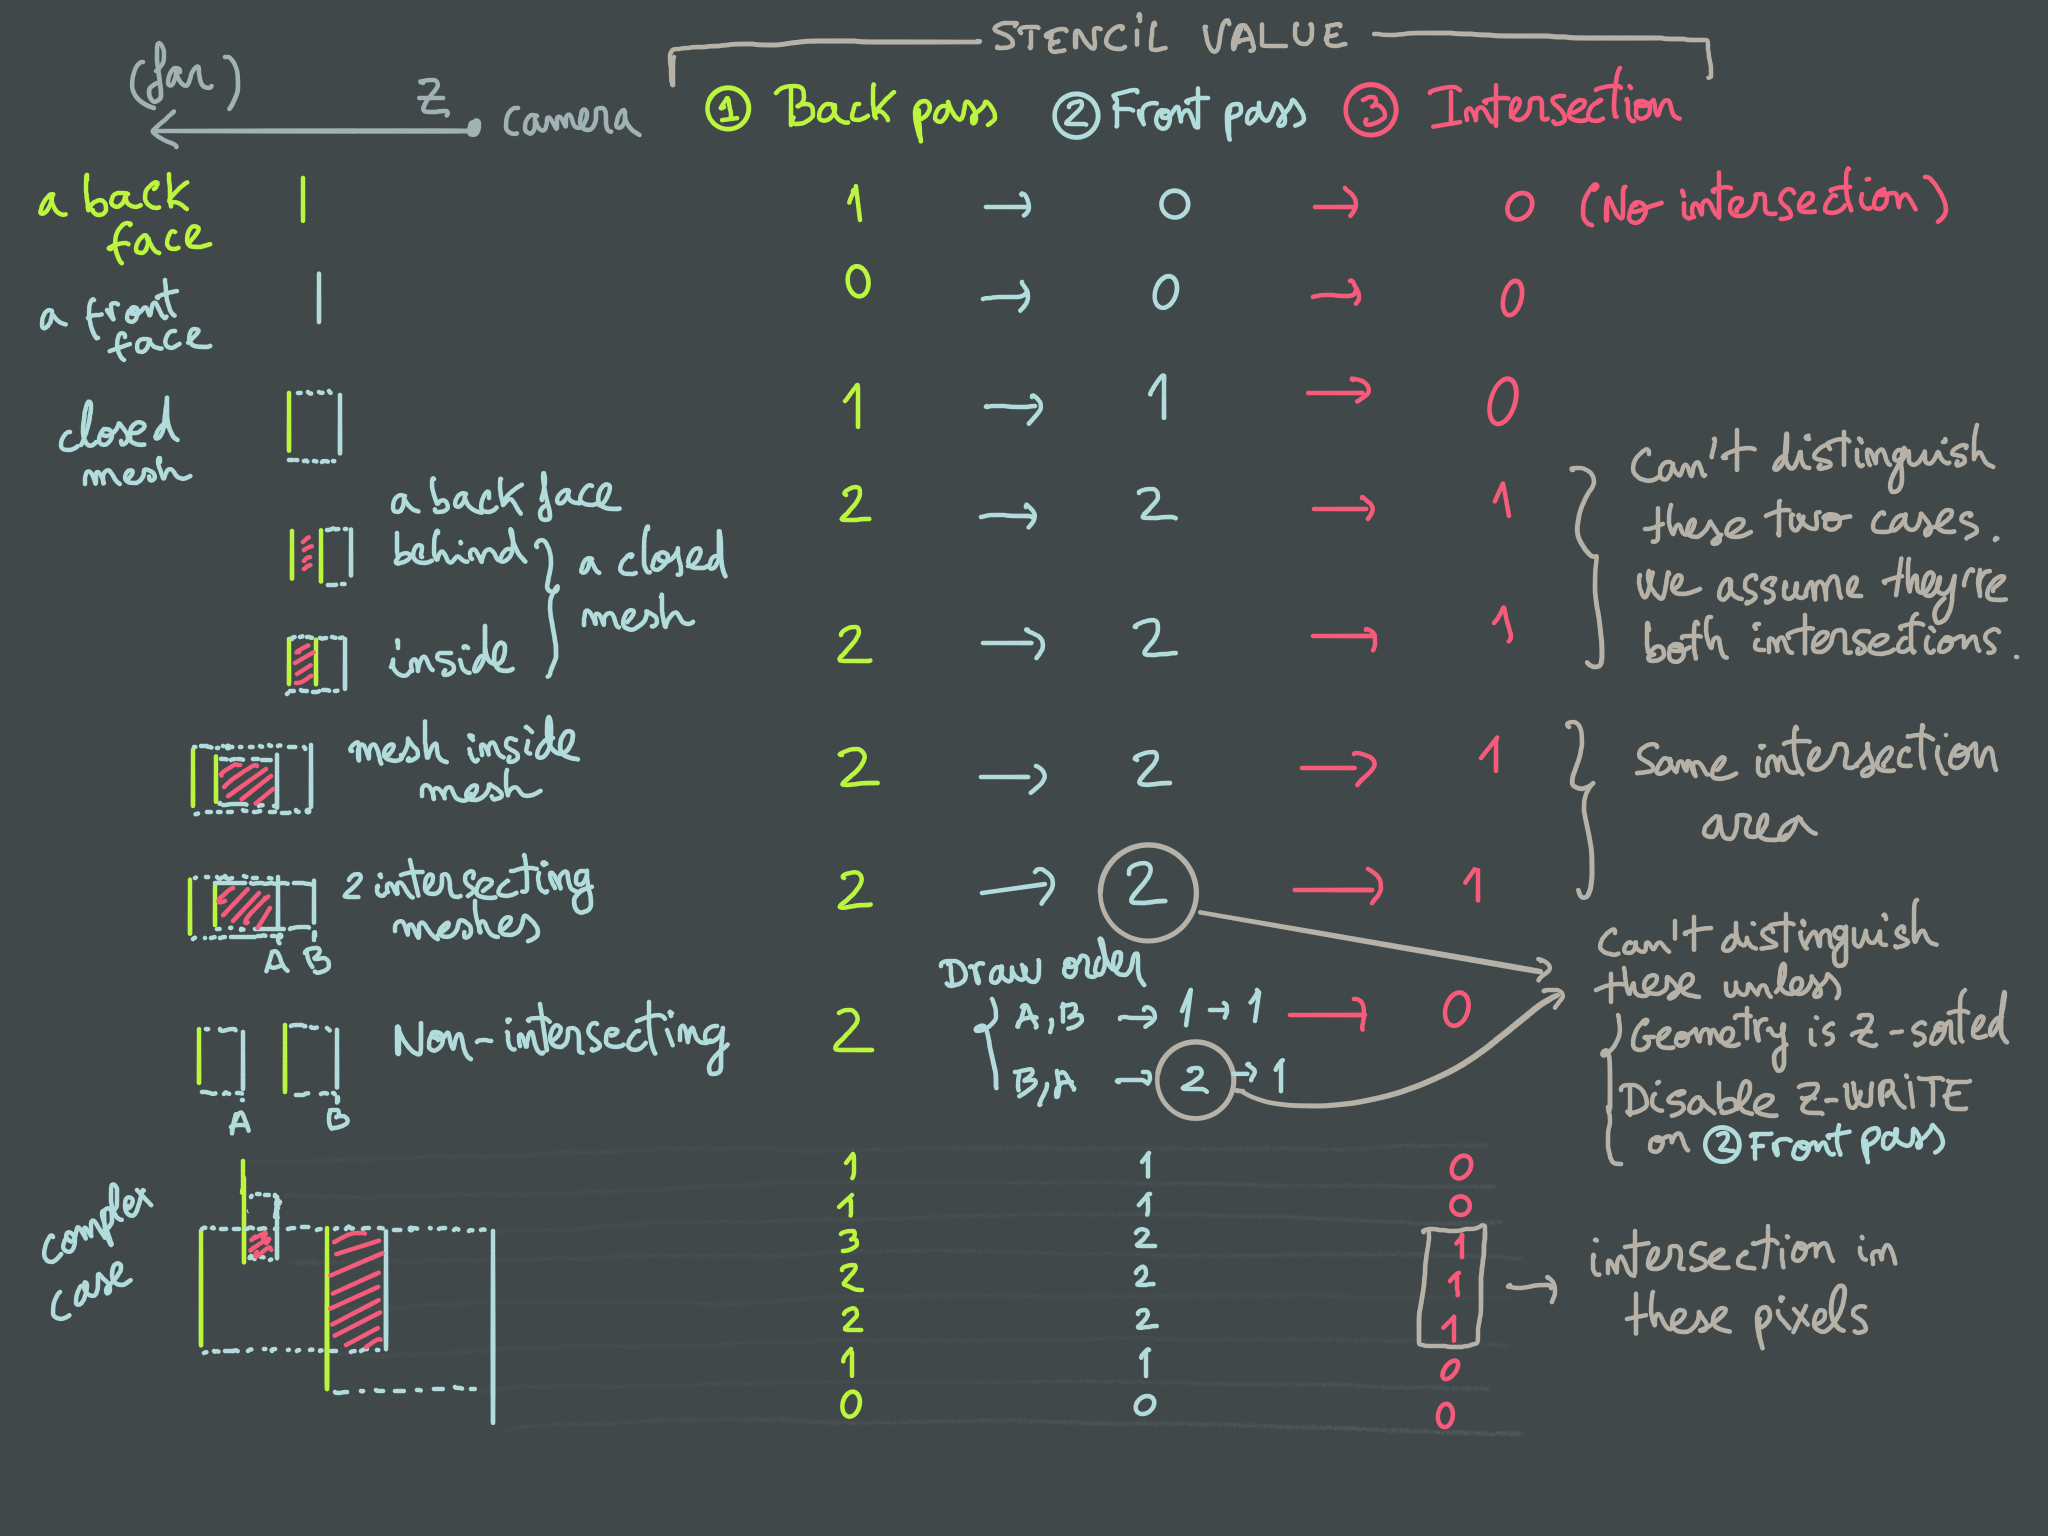 STENCIL VALUE
(far) Z camera
① Back pass ② Front pass ③ Intersection
a back
face
1 → 0 → 0 (No intersection)
a front
face
0 → 0 → 0
closed
mesh
1 → 1 → 0
a back face
behind
2 → 2 → 1
inside
2 → 2 → 1
a closed
mesh
Can't distinguish
these two cases.
We assume they're
both intersections.
mesh inside
mesh
2 → 2 → 1
2 intersecting
meshes
A B
2 → 2 → 1
Same intersection
area
Non-intersecting
A B
2
Draw order
A,B → 1 → 1 → 0
B,A → 2 → 1
Can't distinguish
these unless
Geometry is Z-sorted
Disable Z-WRITE
on ② Front pass
complex
case
1 1 0
1 1 0
3 2 1
2 2 1
2 2 1
1 1 0
0 0 0
→ intersection in
these pixels